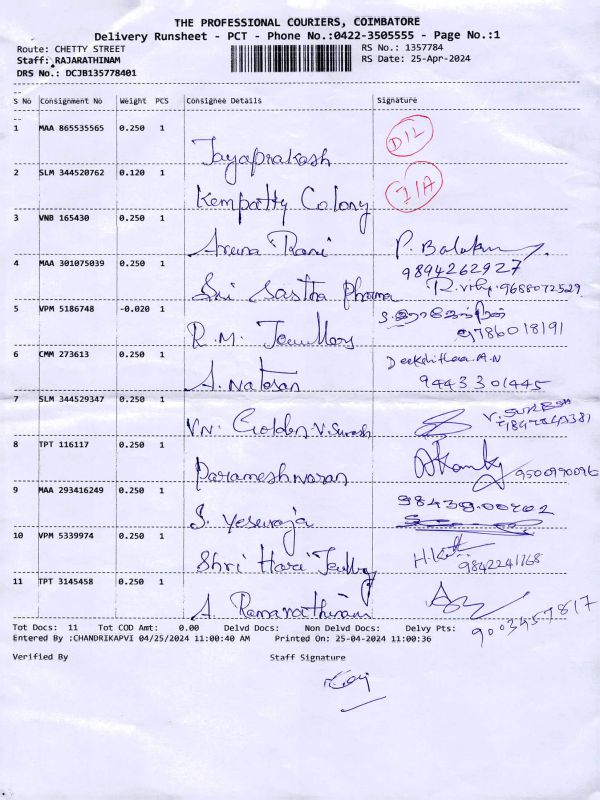 THE PROFESSIONAL COURIERS, COIMBATORE
Delivery Runsheet - PCT - Phone No.:0422-3505555 - Page No.:1
Route: CHETTY STREET RS No.: 1357784
Staff: RAJARATHINAM RS Date: 25-Apr-2024
DRS No.: DCJB135778401
S No Consignment No Weight PCS Consignee Details Signature
1 MAA 865535565 0.250 1 Jayaprakash D/L
2 SLM 344520762 0.120 1 Kempatty Colony I/A
3 VNB 165430 0.250 1 Aruna Rani P. Balakum
9894262927
4 MAA 301075039 0.250 1 Sri Sastha Pharma 9688072529
5 VPM 5186748 -0.020 1 R.M. Jewellers
9786018191
6 CMM 273613 0.250 1 A. Natesan Deekshithaa.A.N
9443301445
7 SLM 344529347 0.250 1 V.N. Golden V. Suresh V. SURESH
8 TPT 116117 0.250 1 Parameshwaran 9500990096
9 MAA 293416249 0.250 1 S. Yesuraja
10 VPM 5339974 0.250 1 Shri Hari Jewellery
9842241168
11 TPT 3145458 0.250 1 A. Ramanathan
9003457817
Tot Docs: 11 Tot COD Amt: 0.00 Delvd Docs: Non Delvd Docs: Delvy Pts:
Entered By :CHANDRIKAPVI 04/25/2024 11:00:40 AM Printed On: 25-04-2024 11:00:36
Verified By Staff Signature